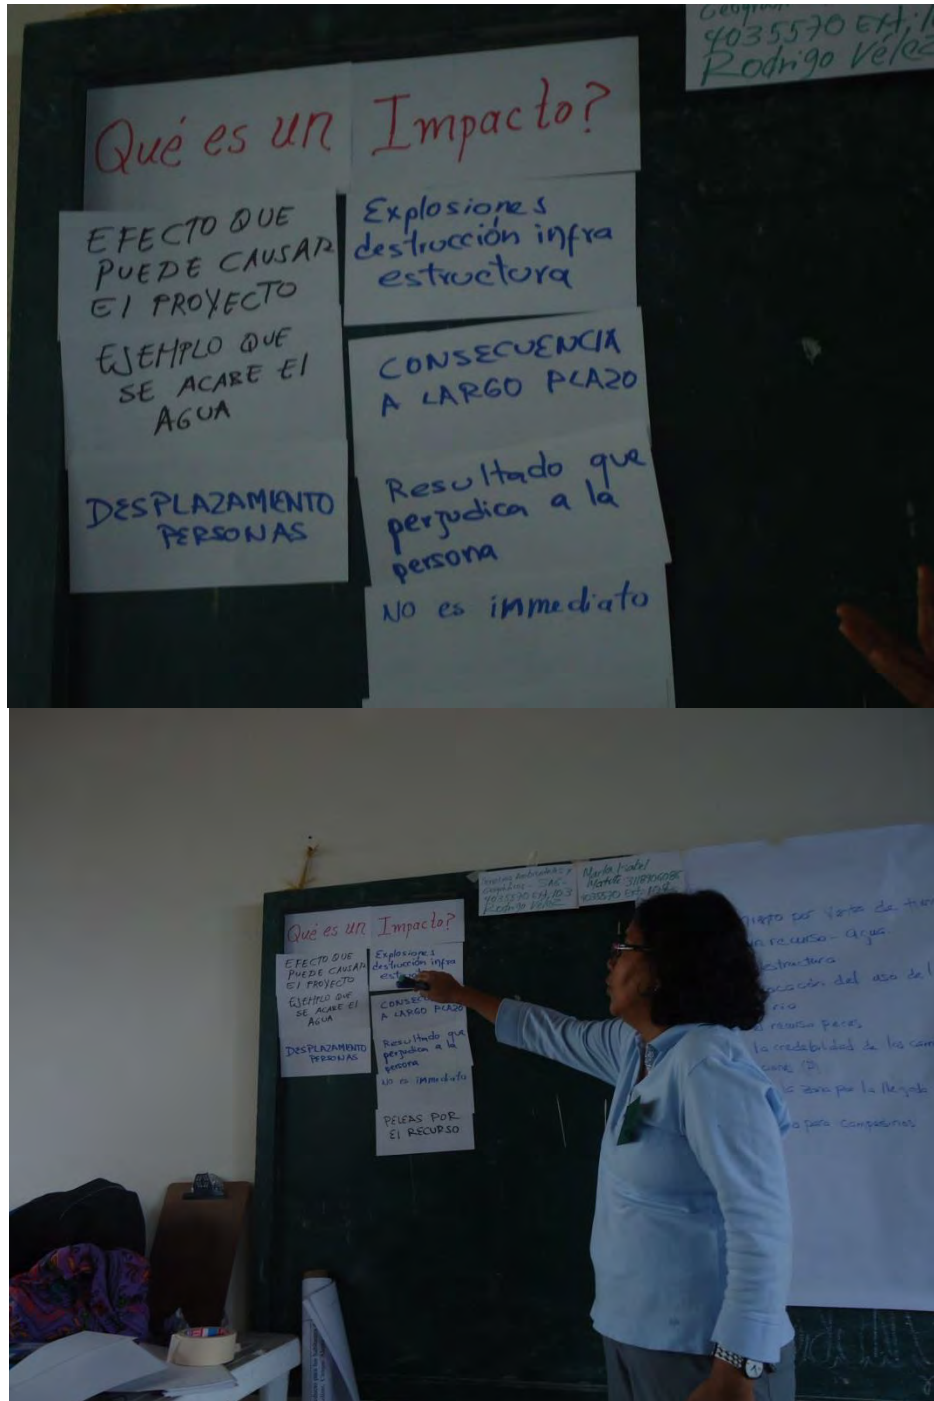 4035570 Ext,
Rodrigo Vélez
Qué es un Impacto?
EFECTO QUE
PUEDE CAUSAR
El PROYECTO
EJEMPLO QUE
SE ACABE El
AGUA
DESPLAZAMIENTO
PERSONAS
Explosiones
destrucción infra
estructura
CONSECUENCIA
A LARGO PLAZO
Resultado que
perjudica a la
persona
NO es immediato
4035570 Ext, 103
Rodrigo Vélez
María Isabel
4035570 Ext:
Qué es un Impacto?
EFECTO QUE
PUEDE CAUSAR
El PROYECTO
EJEMPLO QUE
SE ACABE El
AGUA
DESPLAZAMIENTO
PERSONAS
Explosiones
destrucción infra
CONSEC
A LARGO PLAZO
Resultado que
perjudica a la
persona
NO es immediato
PELEAS POR
El RECURSO
por venta de
recurso - agua
structura
del uso del
recurso peces
la credibilidad de los cam
zona por la llegada
para campesinos